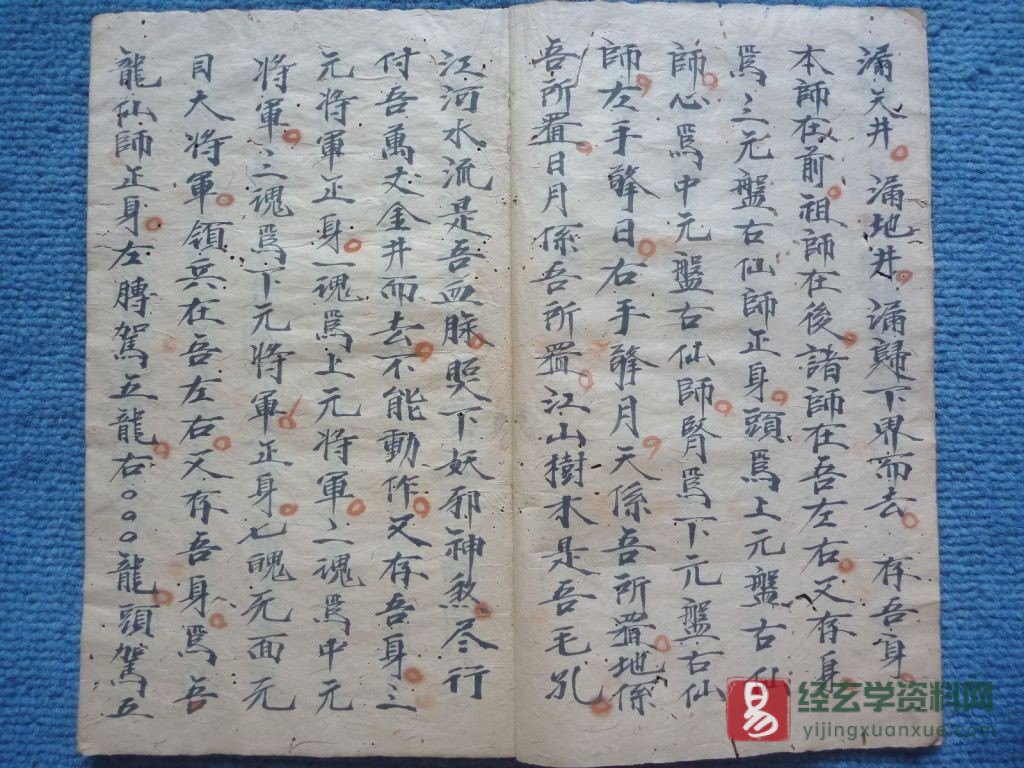 漏天井漏地井漏歸下界而去 存吾身
本師在前祖師在後諸師在吾左右又存身
爲三元盤古仙師正身頭爲上元盤古仙
師心爲中元盤古仙師腎爲下元盤古仙
師左手擎日右手擎月天係吾所置地係
吾所置日月係吾所置江山樹木是吾毛孔
江河水流是吾血脉照下妖邪神煞尽行
付吾萬丈金井而去不能動作又存吾身三
元将軍正身一魂爲上元将軍二魂爲中元
将軍三魂爲下元将軍正身七魄元面元
目大将軍領兵在吾左右又存吾身爲吾
龍仙師正身左膊駕五龍右〇〇〇龍頭駕五
易
经玄学资料网
yijingxuanxue.com